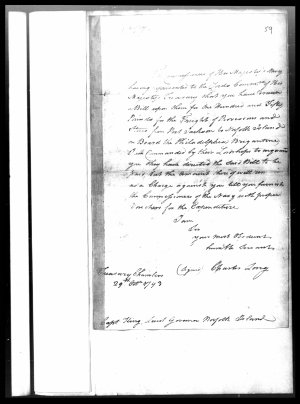 59
Commissioners of His Majesty's Navy
having presented to the Lords Commrs of His
Majesty's Treasury that you have drawn
a Bill upon them for One Hundred and Fifty
Pounds for the Freight of Provisions and
Stores from Port Jackson to Norfolk Island
on Board the Philadelphia, Brigantine,
I am Commanded by their Lordships to acquaint
you they have directed the said Bill to be
paid, but the amount thereof will
as a Charge against you till you furnish
the Commissioners of the Navy with proper
Vouchers for the Expenditure
I am
Sir
your most Obedient
humble Servant
(Signed) Charles Long
Treasury Chambers
29th Octr 1793
Capt King Lieut Governor Norfolk Island